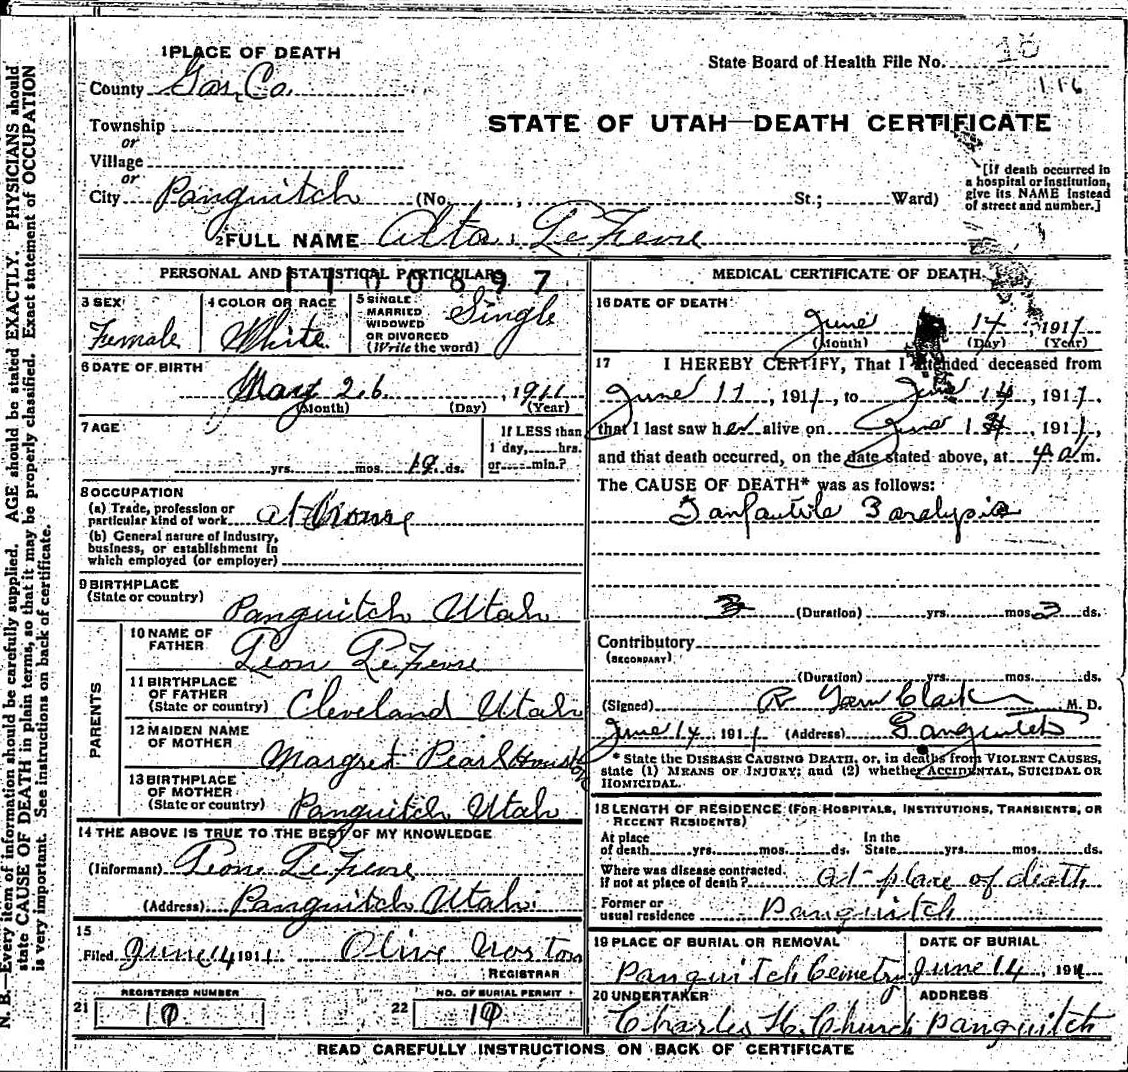 1 PLACE OF DEATH
State Board of Health File No.
116
County Gar, Co.
STATE OF UTAH—DEATH CERTIFICATE
Township
or
Village
or
City Panguitch (No. , St.; Ward)
[If death occurred in a hospital or institution, give its NAME instead of street and number.]
2 FULL NAME Alta LeFevre
PERSONAL AND STATISTICAL PARTICULARS
1100897
3 SEX
Female
4 COLOR OR RACE
White
5 SINGLE MARRIED WIDOWED OR DIVORCED (Write the word)
Single
6 DATE OF BIRTH
May 26, 1911
(Month) (Day) (Year)
7 AGE
yrs. mos. 19 ds.
If LESS than 1 day, hrs. or min.?
8 OCCUPATION
(a) Trade, profession or particular kind of work At Home
(b) General nature of Industry, business, or establishment in which employed (or employer)
9 BIRTHPLACE
(State or country)
Panguitch Utah
PARENTS
10 NAME OF FATHER
Leon LeFevre
11 BIRTHPLACE OF FATHER (State or country)
Cleveland Utah
12 MAIDEN NAME OF MOTHER
Margret Pearl Houston
13 BIRTHPLACE OF MOTHER (State or country)
Panguitch Utah
14 THE ABOVE IS TRUE TO THE BEST OF MY KNOWLEDGE
(Informant) Leon LeFevre
(Address) Panguitch Utah
15
Filed June 14 1911 Olive
REGISTRAR
21 REGISTERED NUMBER
22 NO. OF BURIAL PERMIT
MEDICAL CERTIFICATE OF DEATH
16 DATE OF DEATH
June 14, 1911
(Month) (Day) (Year)
17 I HEREBY CERTIFY, That I attended deceased from
June 11, 1911, to June 14, 1911,
that I last saw her alive on June 1, 1911,
and that death occurred, on the date stated above, at 4 a m.
The CAUSE OF DEATH* was as follows:
Infantile Paralysis
(Duration) yrs. mos. 3 ds.
Contributory
(SECONDARY)
(Duration) yrs. mos. ds.
(Signed) R Clark M. D.
June 14 1911 (Address) Panguitch
* State the DISEASE CAUSING DEATH, or, in deaths from VIOLENT CAUSES, state (1) MEANS OF INJURY; and (2) whether ACCIDENTAL, SUICIDAL OR HOMICIDAL.
18 LENGTH OF RESIDENCE (FOR HOSPITALS, INSTITUTIONS, TRANSIENTS, OR RECENT RESIDENTS)
At place of death yrs. mos. ds. In the State yrs. mos. ds.
Where was disease contracted, if not at place of death? at place of death
Former or usual residence Panguitch
19 PLACE OF BURIAL OR REMOVAL
Panguitch Cemetry
DATE OF BURIAL
June 14, 1911
20 UNDERTAKER
Charles H. Church
ADDRESS
Panguitch
READ CAREFULLY INSTRUCTIONS ON BACK OF CERTIFICATE
N. B.—Every item of information should be carefully supplied. AGE should be stated EXACTLY. PHYSICIANS should
state CAUSE OF DEATH in plain terms, so that it may be properly classified. Exact statement of OCCUPATION
is very important. See instructions on back of certificate.